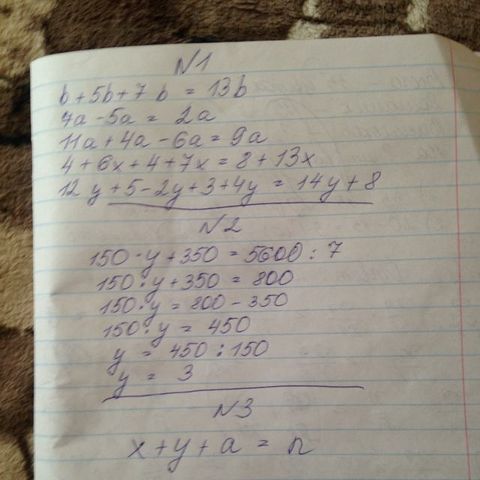 N1
b + 5b + 7b = 13b
7a - 5a = 2a
11a + 4a - 6a = 9a
4 + 6x + 4 + 7x = 8 + 13x
12y + 5 - 2y + 3 + 4y = 14y + 8
N2
150 · y + 350 = 5600 : 7
150 · y + 350 = 800
150 · y = 800 - 350
150 · y = 450
y = 450 : 150
y = 3
N3
x + y + a = n